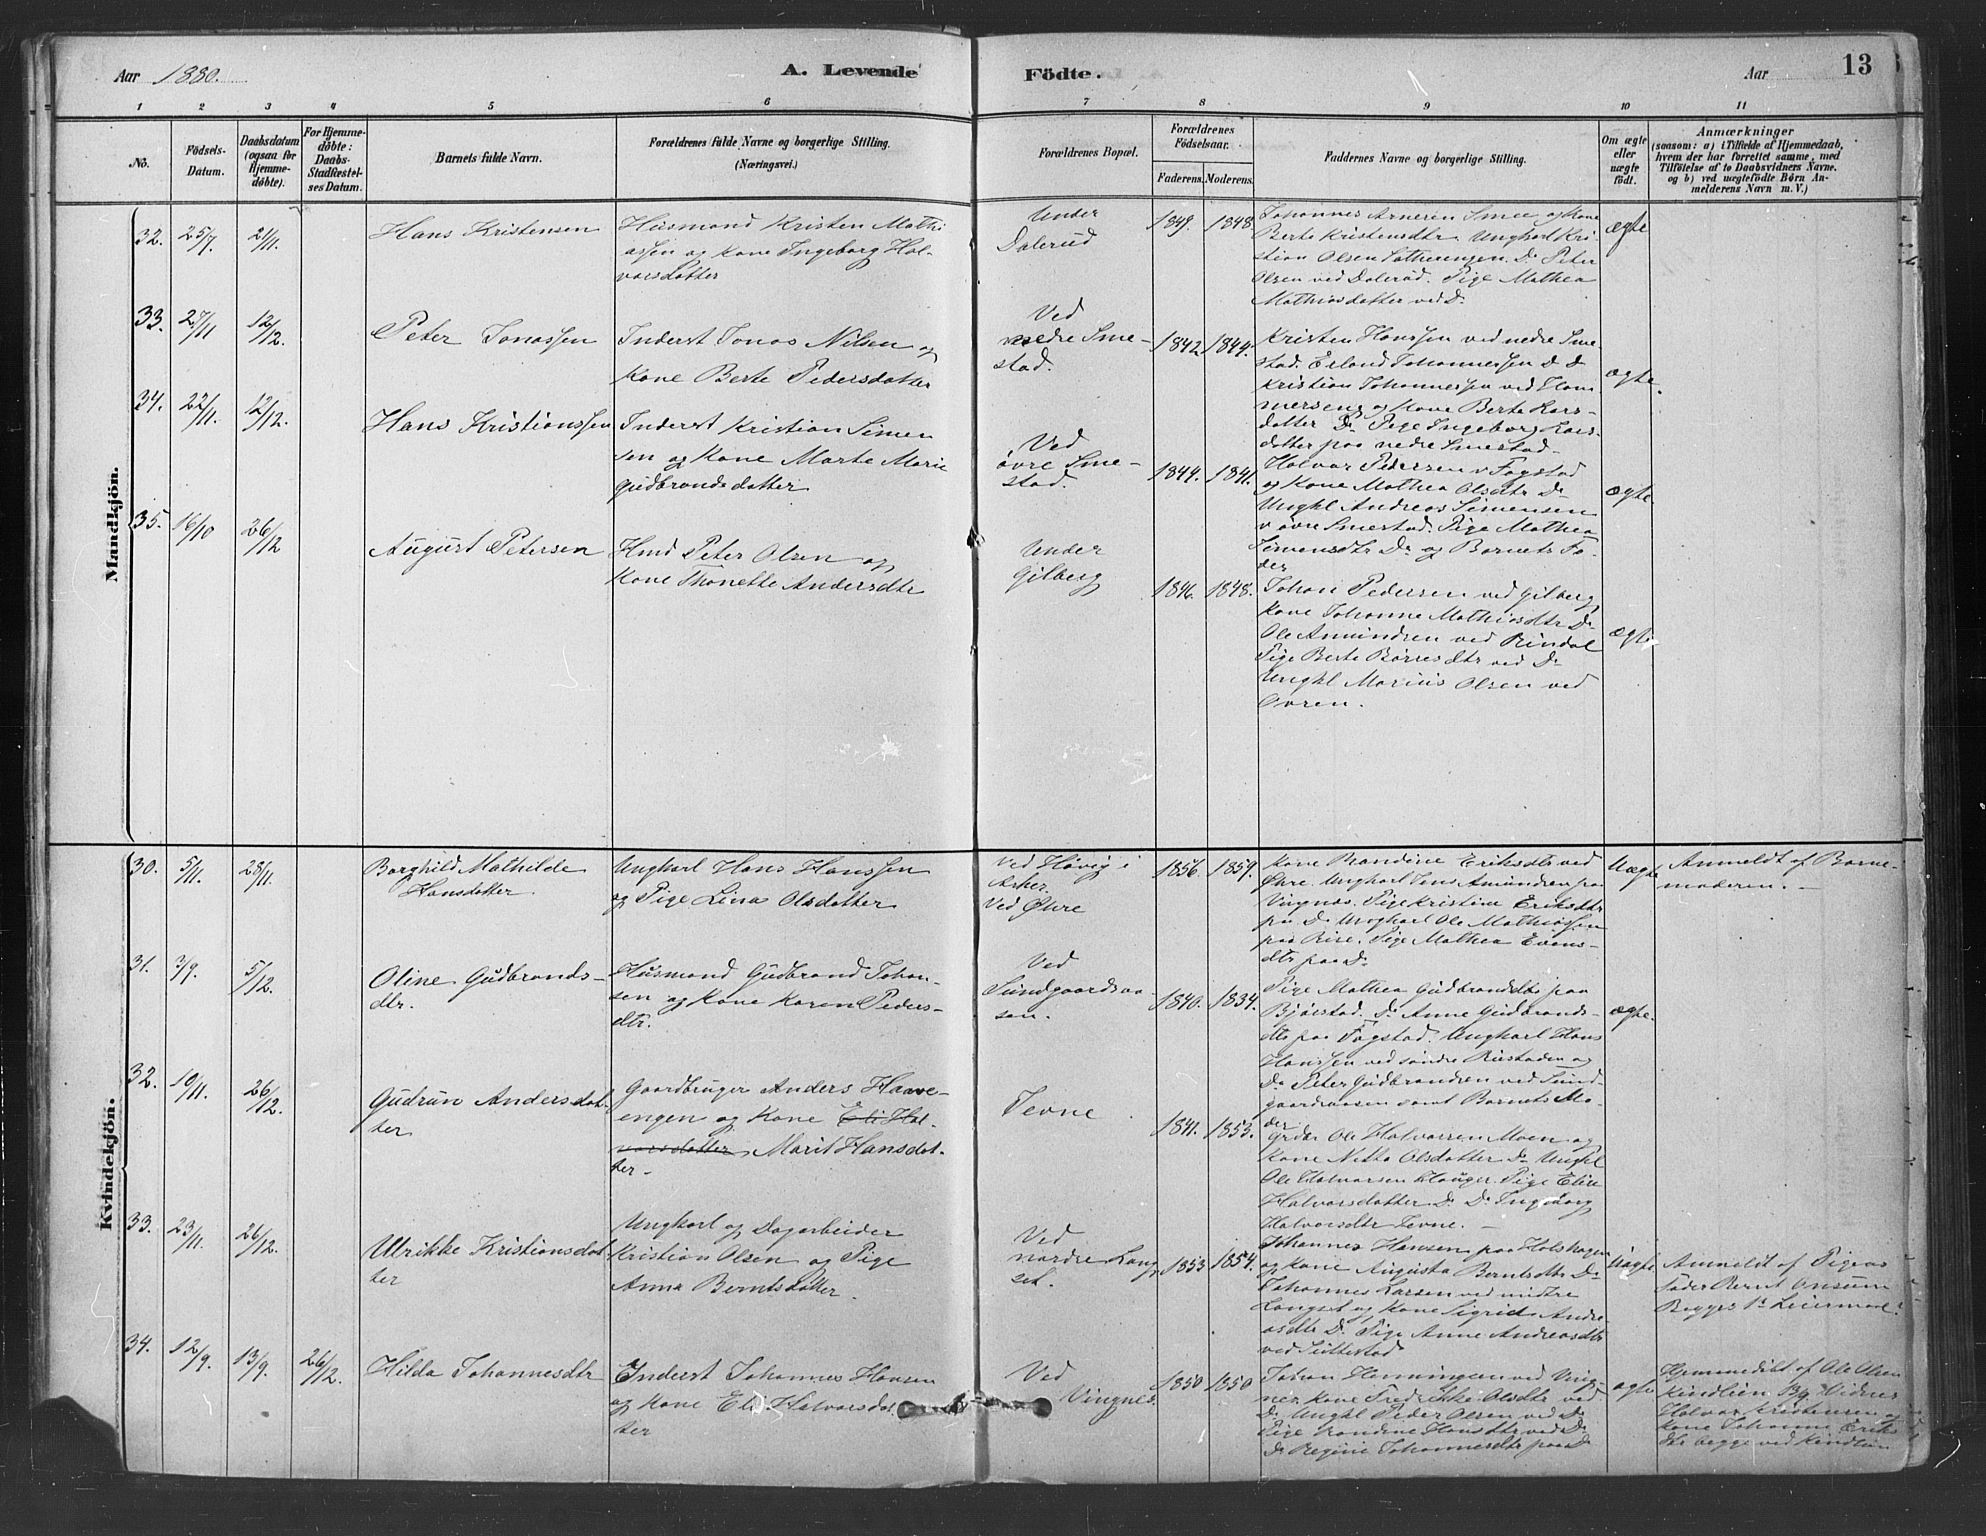 Aar 1880.
A. Levende
Födte.
Aar
13
1 2 3 4 5 6 7 8 9 10 11
No.
Födsels-
Datum.
Daabsdatum
(ogsaa for
Hjemme-
döbte).
For Hjemme-
döbte:
Daabs-
Stadfæstel-
ses Datum.
Barnets fulde Navn.
Forældrenes fulde Navne og borgerlige Stilling.
(Næringsvei.)
Forældrenes Bopæl.
Forældrenes
Födselsaar.
Faderens. Moderens.
Faddernes Navne og borgerlige Stilling.
Om ægte
eller
uægte
födt.
Anmærkninger
(saasom: a) i Tilfælde af Hjemmedaab,
hvem der har forrettet samme, med
Tilföielse af to Daabsvidners Navne,
og b) ved uægtefödte Börn An-
melderens Navn m. V.)
Mandkjön.
32. 25/7 21/11.
Hans Kristensen
Husmand Kristen Mathi
assen og Kone Ingeborg Hal-
vorsdatter
Under
Dalerud
1849. 1848.
Johannes Arnesen Smee og Kone
Berte Kristensdtr Ungkarl Kri-
stian Olsen Do Peter
Olsen ved Dalerud. Pige Mathea
Mathiasdatter ved Do
ægte
33. 27/11 12/12.
Peter Jonassen
Inderst Jonas Nilsen og
Kone Berte Pedersdatter
Ved
nedre Sme-
stad.
1842 1844.
Kristen Hanssen ved nedre Sme-
stad. Erland Johannessen D D
Kristian Johannessen ved Ham
merseng og Kone Berte Lars-
datter Do Pige Ingeborg Lars-
datter paa nedre Smestad
ægte.
34. 22/11. 12/12.
Hans Kristianssen
Inderst Kristian Simen
sen og Kone Marte Marie
Gudbrandsdatter
Ved
övre Sme-
stad.
1844. 1841.
Halvor Pedersen v Fogstad
og Kone Mathea Olsdtr Do
Ungkl Andreas Simensen
v övre Smestad. Pige Mathea
Simensdtr Do og Barnets Fa-
der
ægte
35. 16/10 26/12
August Petersen
Hmd Peter Olsen og
Kone Thonette Andersdtr
Under
Gilberg
1846. 1848.
Johan Pedersen ved Gilberg,
Kone Johanne Mathiasdtr Do
Ole Amundsen ved Rindal
Pige Berte Börresdtr ved Do
Ungkl Marius Olsen ved
Ovren.
ægte
Kvindekjön.
30. 5/11. 28/11.
Borghild Mathilde
Hansdatter.
Ungkarl Hans Hanssen
og Pige Lina Olsdatter
Ved Hövig i
Asker.
Ved Öhre
1856. 1859.
Kone Randine Eriksdtr ved
Öhre. Ungkarl Jens Amundsen paa
Vingnæs. Pige Kristine Eriksdtr
paa Do Ungkarl Ole Mathiassen
paa Riise. Pige Mathea Evens-
dtr paa Do
Uægte
Anmeldt af Barne-
moderen. —
31. 7/9. 5/12.
Oline Gudbrands-
dtr.
Husmand Gudbrand Johan-
sen og Kone Karen Peders-
dtr.
Ved
Sundgaardsaa-
sen.
1840. 1834.
Pige Mathea Gudbrandsdtr paa
Bjørstad. Do Anne Gudbrands-
dtr paa Fogstad. Ungkarl Hans
Hanssen ved søndre Rustaden og
Do Peter Gudbrandsen ved Sund-
gaardsaasen samt Barnets Mo-
der
ægte.
32. 10/11. 26/12.
Gudrun Andersdat-
ter
Gaardbruger Anders Haave-
engen og Kone Eli Hal-
vorsdatter, Marit Hansdat-
ter.
Jevne
1841. 1853.
Grdbr Ole Halvorsen Moen og
Kone Netta Olsdatter Do Ungkl
Ole Halvorsen Hauger. Pige Elise
Halvorsdatter Do Do Ingeborg
Halvorsdtr Jevne. —
33. 23/11. 26/12.
Ulrikke Kristiansdat
ter
Ungkarl og Dagarbeider
Kristian Olsen og Pige
Anna Berntsdatter.
Ved
nordre Lang
set.
1853 1854.
Johannes Hansen paa Holshagen
og Kone Augusta Berntsdtr Do
Johannes Larsen ved midtre
Langset og Kone Sigrid Andre-
asdtr Do Pige Anne Andreasdtr
ved Suttestad
Uægte
Anmeldt af Pigens
Fader Bernt Onsum
Begges 1ste Leiermaal
34. 12/9. 13/9. 26/12.
Hilda Johannesdtr
Inderst Johannes Hansen
og Kone Eli Halvorsdat
ter
Ved
Vingnes.
1850 1850
Johan Henningsen ved Ving-
nes, Kone Fredrikke Olsdtr ved
Do Ungkl Peder Olsen ved Do
Pige Randine Hansdtr ved Do
Do Regine Johannesdtr paa Do
ægte
Hjemmedöbt af Ole Olsen
Kindlien Bg Vidner
Halvor Kristensen og
Kone Johanne Eriks
dtr begge ved Kindlien